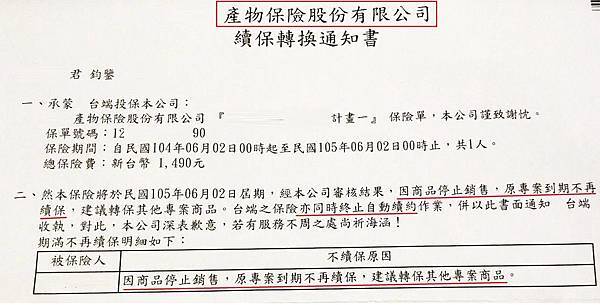 產物保險股份有限公司
續保轉換通知書
君 鈞鑒
一、承蒙 台端投保本公司：
產物保險股份有限公司 『 計畫一』 保險單，本公司謹致謝忱。
保單號碼：12 90
保險期間：自民國104年06月02日00時起至民國105年06月02日00時止，共1人。
總保險費：新台幣 1,490元
二、然本保險將於民國105年06月02日屆期，經本公司審核結果，因商品停止銷售，原專案到期不再
續保，建議轉保其他專案商品。台端之保險亦同時終止自動續約作業，併以此書面通知 台端
收執，對此，本公司深表歉意，若有服務不周之處尚祈海涵！
期滿不再續保明細如下：
被保險人 不續保原因
因商品停止銷售，原專案到期不再續保，建議轉保其他專案商品。